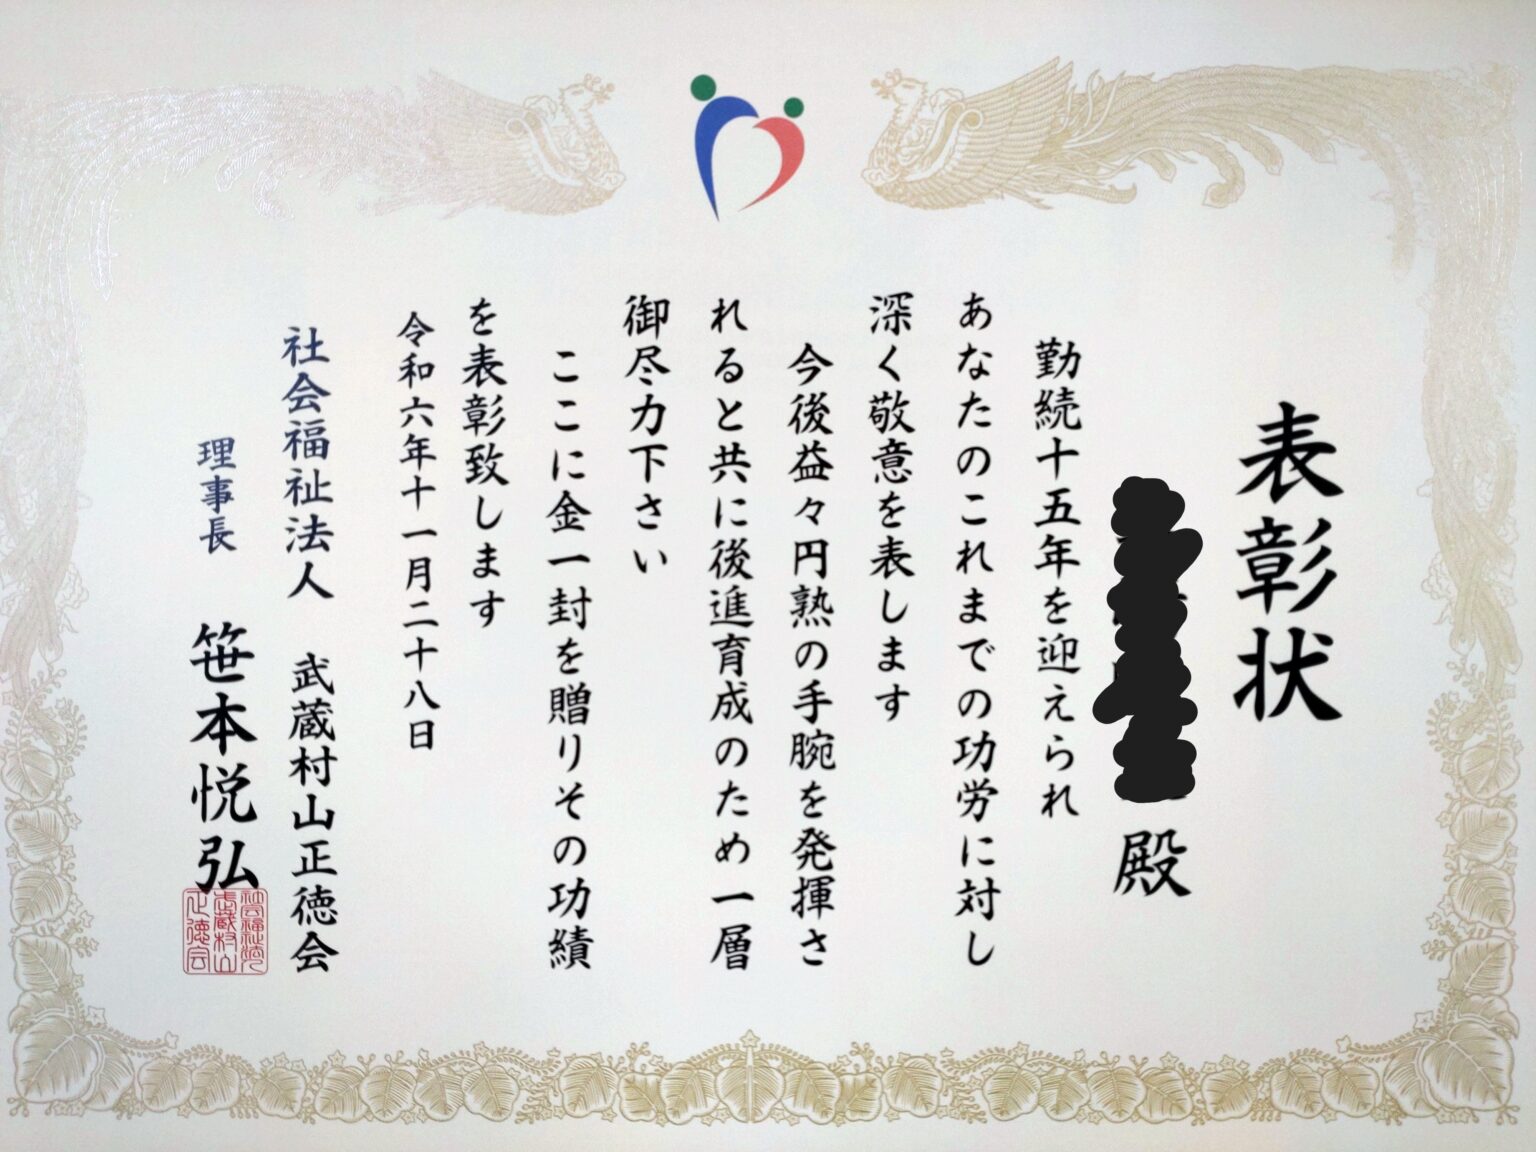 表彰状
殿
勤続十五年を迎えられ
あなたのこれまでの功労に対し
深く敬意を表します
今後益々円熟の手腕を発揮さ
れると共に後進育成のため一層
御尽力下さい
ここに金一封を贈りその功績
を表彰致します
令和六年十一月二十八日
社会福祉法人 武蔵村山正徳会
理事長 笹本悦弘
社会福祉法人
武蔵村山
正徳会